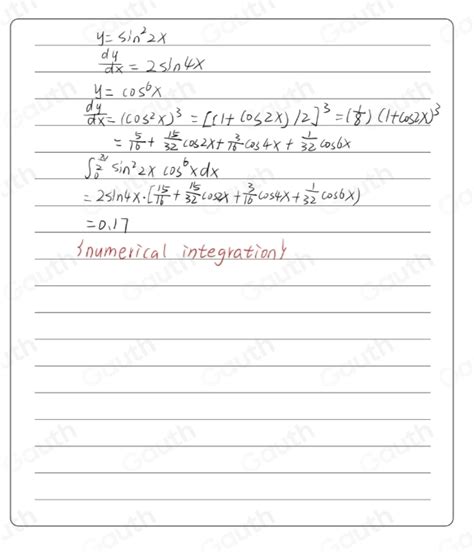 y = sin²2x
dy/dx = 2sin4x
y = cos⁶x
dy/dx = (cos²x)³ = [(1+cos2x)/2]³ = (1/8)(1+cos2x)³
= 5/16 + 15/32 cos2x + 3/16 cos4x + 1/32 cos6x
sin²2x cos⁶x dx
= 2sin4x·[15/16 + 15/32 cos2x + 3/16 cos4x + 1/32 cos6x)
= 0.17
{numerical integration}